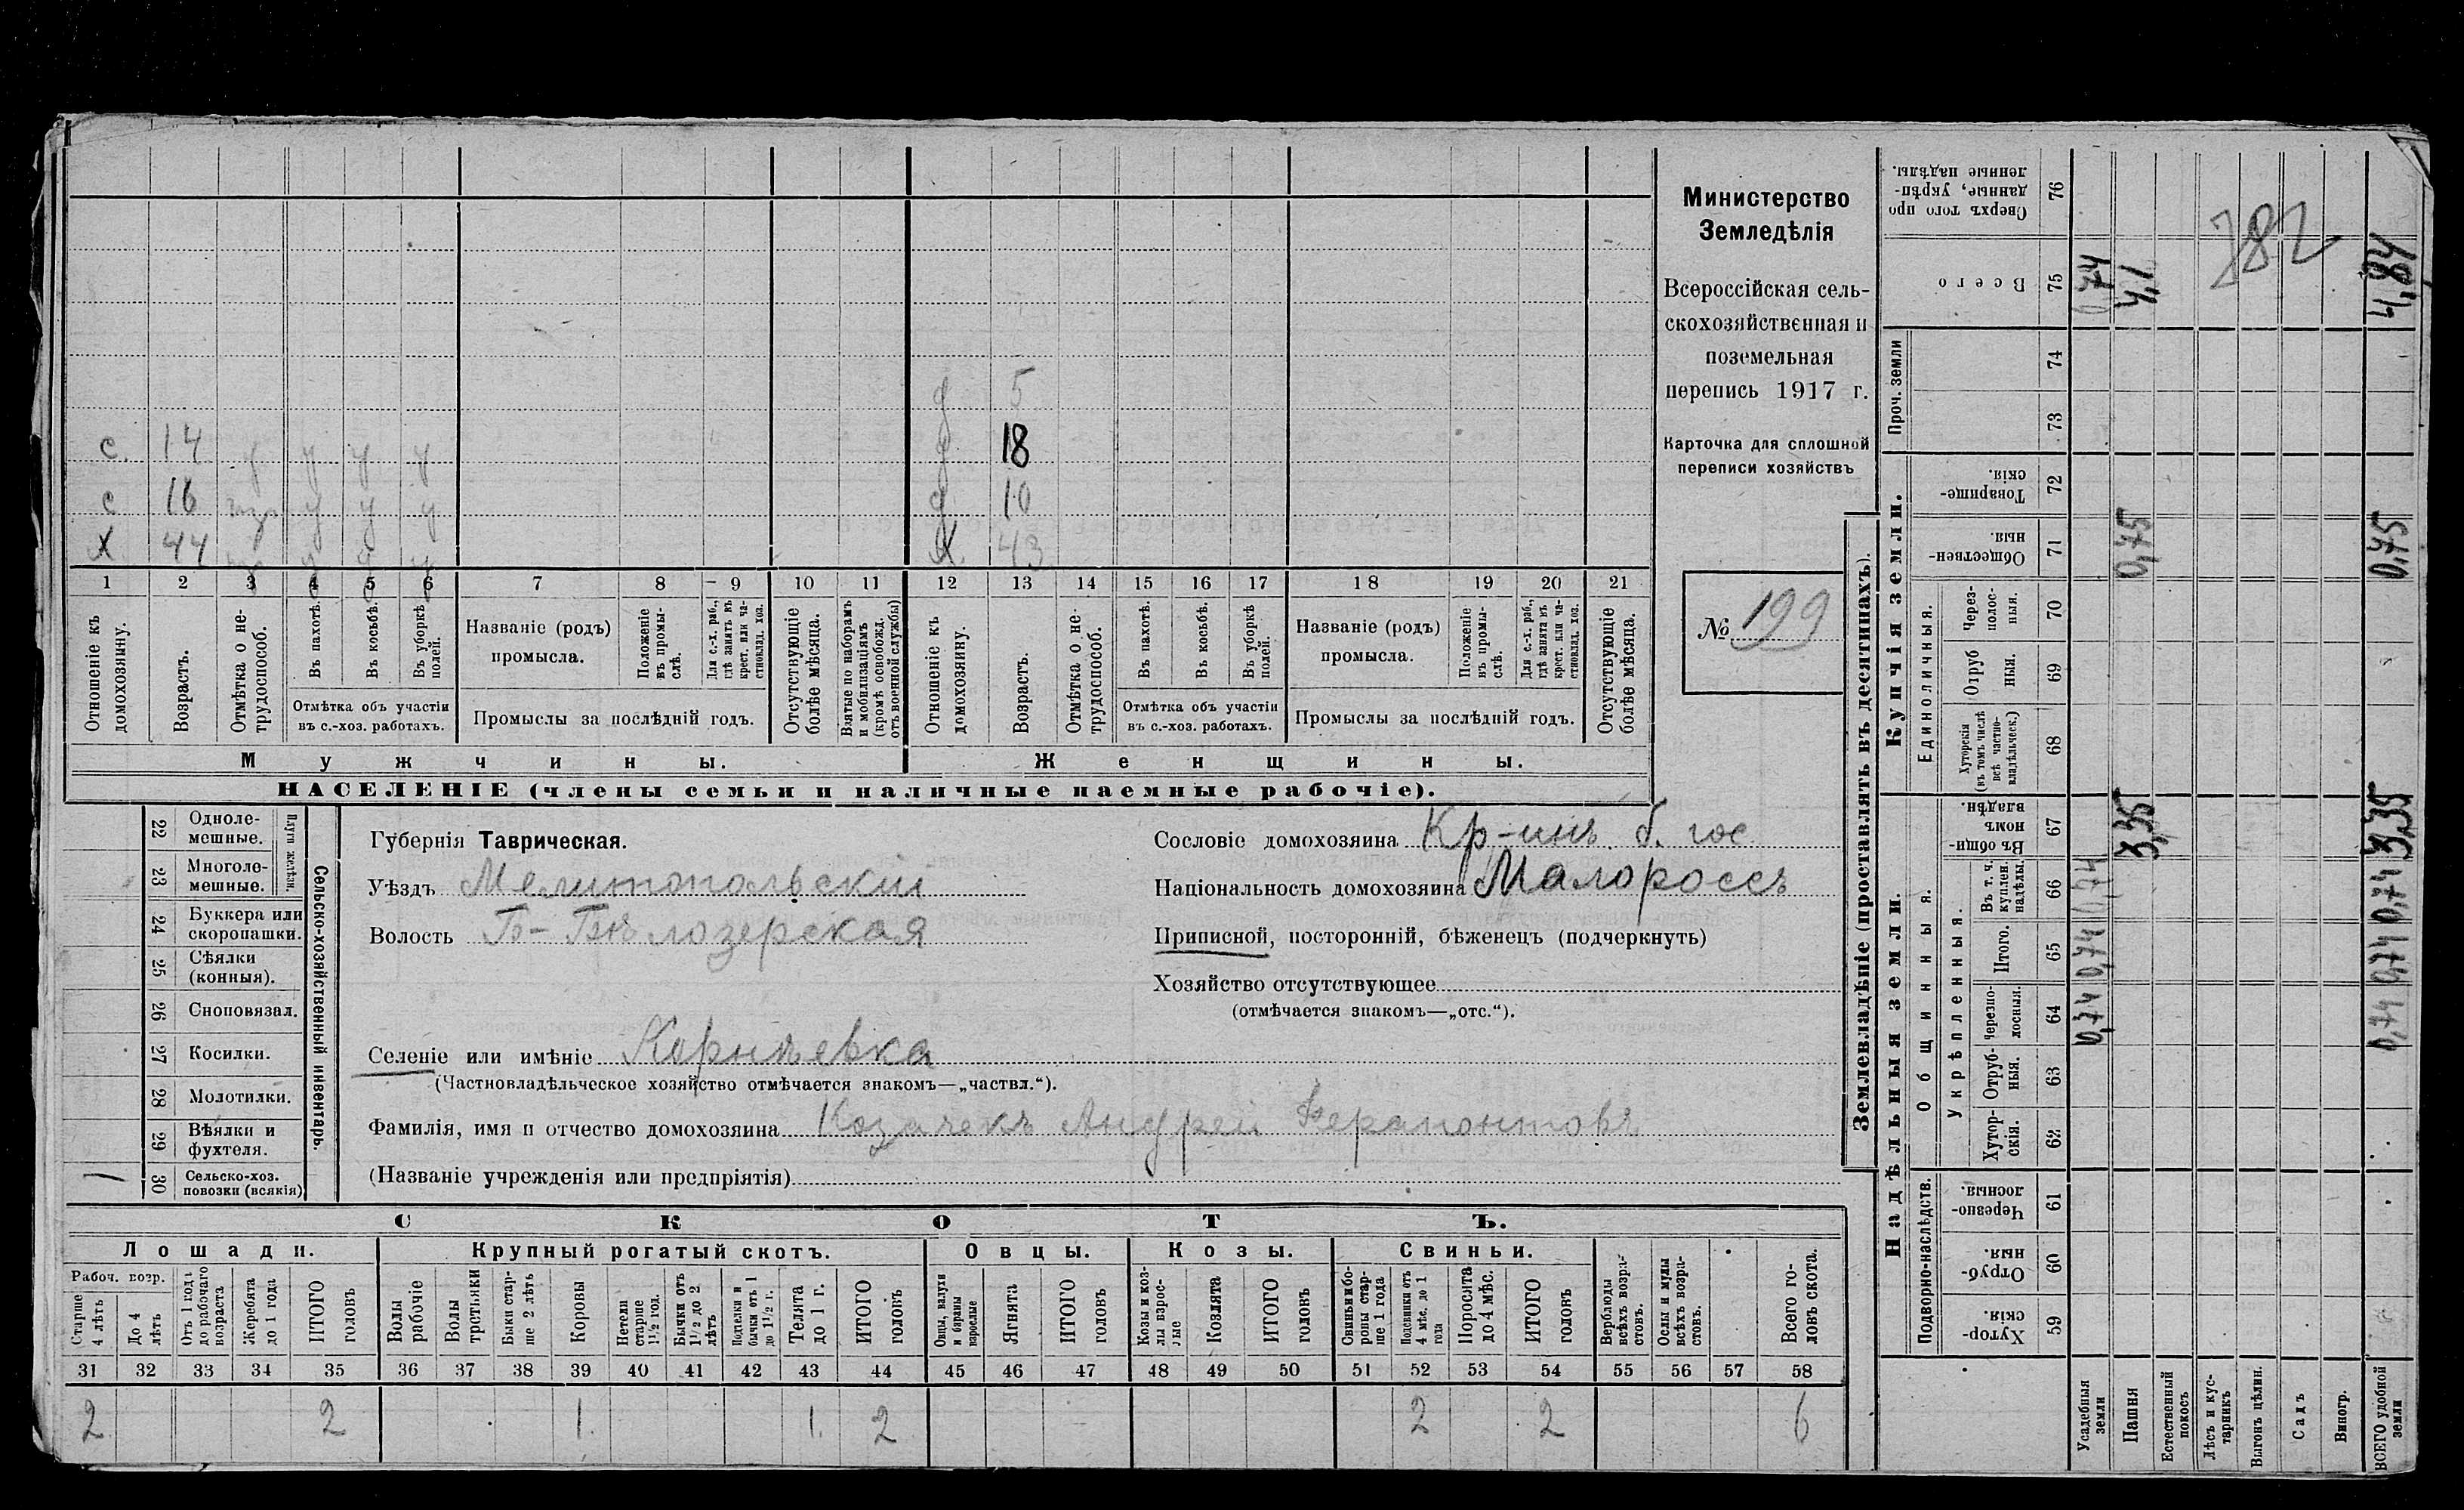 с. 14 у у у у д 5
с 16 у у у д 18
х 44 д 10
х 43
1 2 3 4 5 6 7 8 9 10 11 12 13 14 15 16 17 18 19 20 21
Отношеніе къ домохозяину.
Возрастъ.
Отмѣтка о не-
трудоспособ.
Въ пахотѣ.
Въ косьбѣ.
Въ уборкѣ полей.
Отмѣтка объ участіи
въ с.-хоз. работахъ.
Названіе (родъ)
промысла.
Положеніе въ промы-
слѣ.
Для с.-х. раб., гдѣ занятъ въ крест. или ча-
стновлад. хоз.
Промыслы за послѣдній годъ.
Отсутствующіе
болѣе мѣсяца.
Взятые по наборамъ
и мобилизаціямъ
(кромѣ освобожд.
отъ военной службы)
Отношеніе къ
домохозяину.
Возрастъ.
Отмѣтка о не-
трудоспособ.
Въ пахотѣ.
Въ косьбѣ.
Въ уборкѣ полей.
Отмѣтка объ участіи
въ с.-хоз. работахъ.
Названіе (родъ)
промысла.
Положеніе въ промы-
слѣ.
Для с.-х. раб., гдѣ занята въ крест. или ча-
стновлад. хоз.
Промыслы за послѣдній годъ.
Отсутствующіе
болѣе мѣсяца.
Мужчины.
Женщины.
НАСЕЛЕНІЕ (члены семьи и наличные наемные рабочіе).
Министерство
Земледѣлія
Всероссійская сель-
скохозяйственная и
поземельная
перепись 1917 г.
Карточка для сплошной
переписи хозяйствъ
№ 199
22 Одноле-
мешные.
23 Многоле-
мешные.
Плуги желѣзн.
24 Буккера или
скоропашки.
25 Сѣялки
(конныя).
26 Сноповязал.
27 Косилки.
28 Молотилки.
29 Вѣялки и
фухтеля.
1 30 Сельско-хоз.
повозки (всякія)
Сельско-хозяйственный инвентарь.
Губернія Таврическая.
Уѣздъ Мелитопольскій
Волость Б-Бѣлозерская
Селеніе или имѣніе Корнѣевка
(Частновладѣльческое хозяйство отмѣчается знакомъ—„частвл.“).
Фамилія, имя и отчество домохозяина Козачекъ Андрей Ферапонтовъ
(Названіе учрежденія или предпріятія)
Сословіе домохозяина Кр-инъ б. гос
Національность домохозяина Малороссъ
Приписной, посторонній, бѣженецъ (подчеркнуть)
Хозяйство отсутствующее
(отмѣчается знакомъ—„отс.“).
СКОТЪ.
Лошади. Крупный рогатый скотъ. Овцы. Козы. Свиньи.
Рабоч. возр.
Старше
4 лѣтъ
До 4
лѣтъ
Отъ 1 года
до рабочаго
возраста
Жеребята
до 1 года
ИТОГО
головъ
Волы
рабочіе
Волы
третьяки
Быки стар-
ше 2 лѣтъ
Коровы
Нетели
старше
1½ год.
Бычки отъ
1½ до 2
лѣтъ
Подтелки и
бычки отъ 1
до 1½ г.
Телята
до 1 г.
ИТОГО
головъ
Овцы, валухи
и бараны
взрослые
Ягнята
ИТОГО
головъ
Козы и коз-
лы взрос-
лые
Козлята
ИТОГО
головъ
Свиньи и бо-
ровы стар-
ше 1 года
Подсвинки отъ
4 мѣс. до 1
года
Поросята
до 4 мѣс.
ИТОГО
головъ
Верблюды
всѣхъ возра-
стовъ.
Ослы и мулы
всѣхъ возра-
стовъ.
Всего го-
ловъ скота.
31 32 33 34 35 36 37 38 39 40 41 42 43 44 45 46 47 48 49 50 51 52 53 54 55 56 57 58
2 2 1. 1. 2 2 2 6
Землевладѣніе (проставлять въ десятинахъ).
Надѣльныя земли.
Купчія земли.
Проч. земли
Подворно-наслѣдств.
Общинныя.
Укрѣпленныя.
Единоличныя.
59 Хутор-
скія.
60 Отруб-
ныя.
61 Черезпо-
лосныя.
62 Хутор-
скія.
63 Отруб-
ныя.
64 Черезпо-
лосныя.
65 Итого.
66 Въ т. ч.
куплен.
надѣлы
67 Въ общи-
номъ
владѣн.
68 Хуторскія
(въ томъ числѣ
всѣ частно-
владѣльческ.)
69 Отруб
ныя.
70 Через-
полос-
ныя.
71 Обществен-
ныя.
72 Товарище-
скія.
73
74
75 Всего
76 Сверхъ того про
данные, укрѣп-
ленные надѣлы.
Усадебныя
земли
0,74 0,74 0,74 0,74
Пашня
3,35 0,75 4,1
Естественный
покосъ
Лѣсъ и кус-
тарникъ
Выгонъ цѣлин.
Садъ
Виногр.
ВСЕГО удобной
земли
0,74 0,74 0,74 3,35 0,75 4,84
782